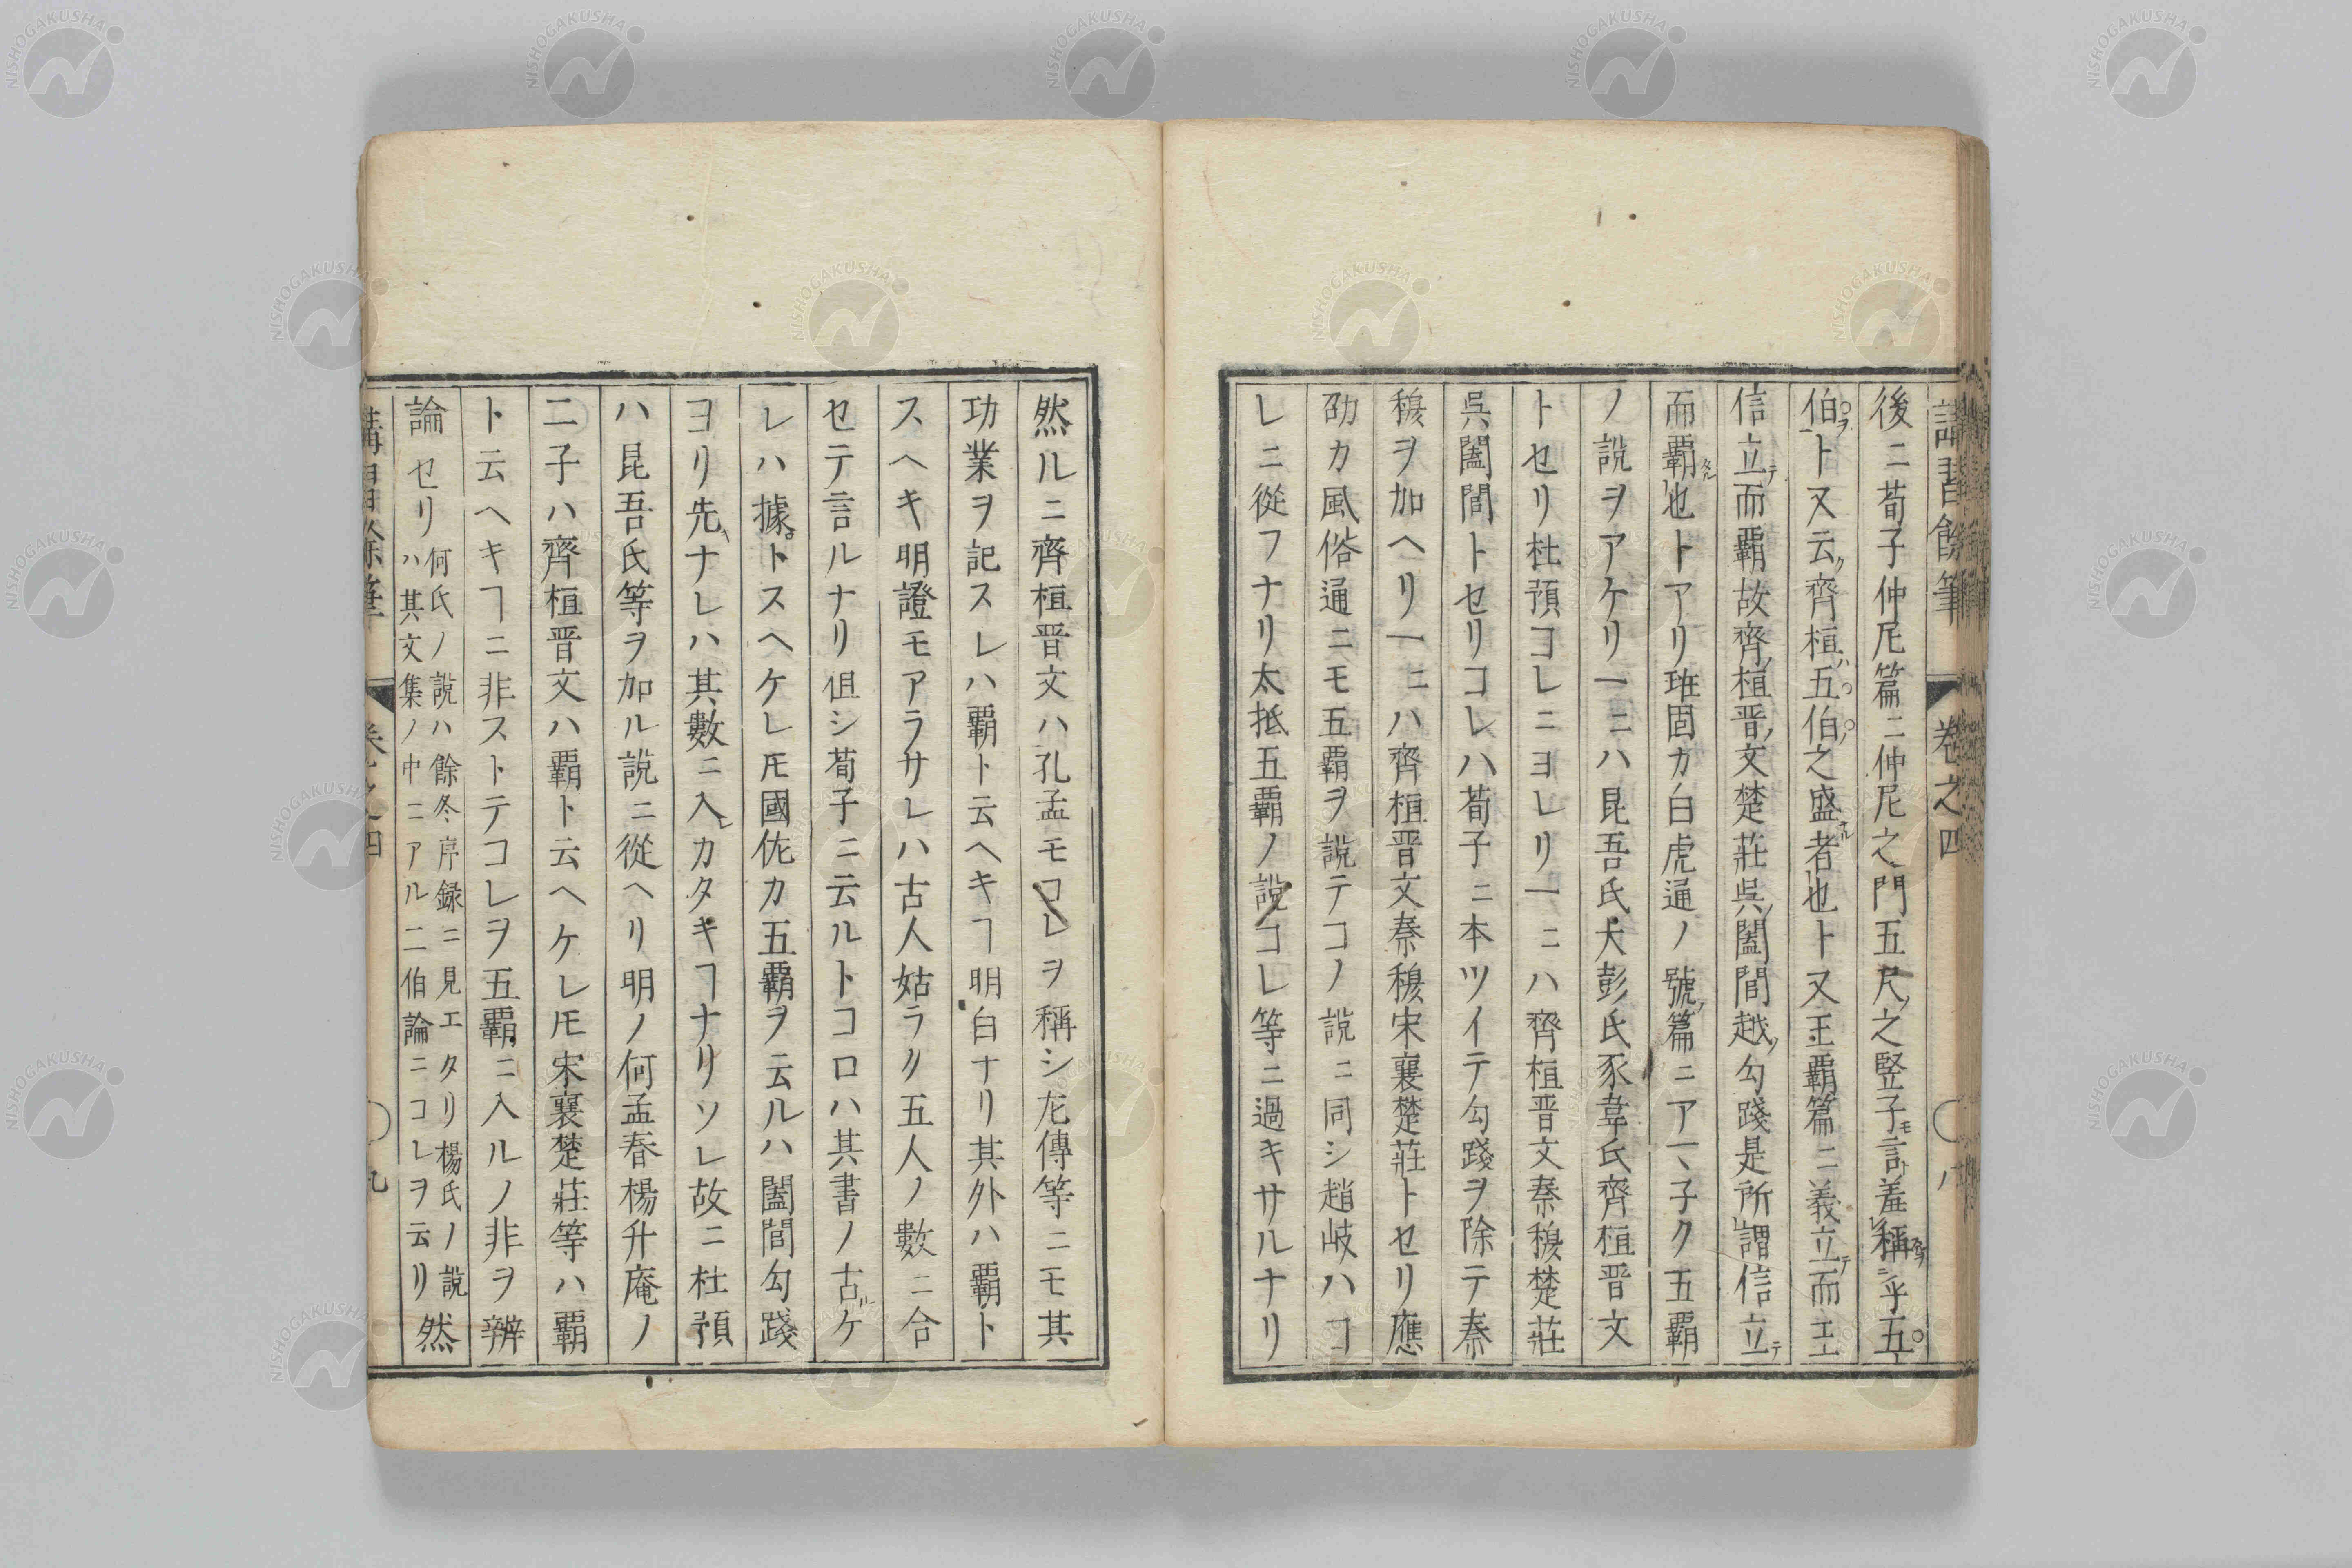 講習餘筆 卷之四 ○ 八
後ニ荀子仲尼篇ニ仲尼之門五尺ノ之竪子モ言羞稱スルヿヲ乎五
伯ヲト又云ク齊桓ハ五伯ノ之盛ナル者也ト又王覇篇ニ義立テ而王
信立テ而覇故齊桓晋文楚莊呉闔閭越ノ勾踐是所謂信立テ
而覇タル也トアリ班固カ白虎通ノ號ノ篇ニアマ子ク五覇
ノ説ヲアケリ一ニハ昆吾氏大彭氏豕韋氏齊桓晋文
トセリ杜預コレニヨレリ一ニハ齊桓晋文秦穆楚莊
呉闔閭トセリコレハ荀子ニ本ツイテ勾踐ヲ除テ秦
穆ヲ加ヘリ一ニハ齊桓晋文秦穆宋襄楚莊トセリ應
劭カ風俗通ニモ五覇ヲ説テコノ説ニ同シ趙岐ハコ
レニ從フナリ太抵五覇ノ説コレ等ニ過キサルナリ
然ルニ齊桓晋文ハ孔孟モコレヲ稱シ左傳等ニモ其
功業ヲ記スレハ覇ト云ヘキヿ明白ナリ其外ハ覇ト
スヘキ明證モアラサレハ古人姑ラク五人ノ數ニ合
セテ言ルナリ但シ荀子ニ云ルトコロハ其書ノ古ルケ
レハ據トスヘケレ𪜈國佐カ五覇ヲ云ルハ闔閭勾踐
ヨリ先ナレハ其數ニ入レカタキヿナリソレ故ニ杜預
ハ昆吾氏等ヲ加ル説ニ從ヘリ明ノ何孟春楊升庵ノ
二子ハ齊桓晋文ハ覇ト云ヘケレ𪜈宋襄楚莊等ハ覇
ト云ヘキヿニ非ストテコレヲ五覇ニ入ルノ非ヲ辨
論セリ何氏ノ説ハ餘冬序録ニ見エタリ楊氏ノ説ハ其文集ノ中ニアル二伯論ニコレヲ云リ然
講習餘筆 卷之四 ○ 九
NISHOGAKUSHA